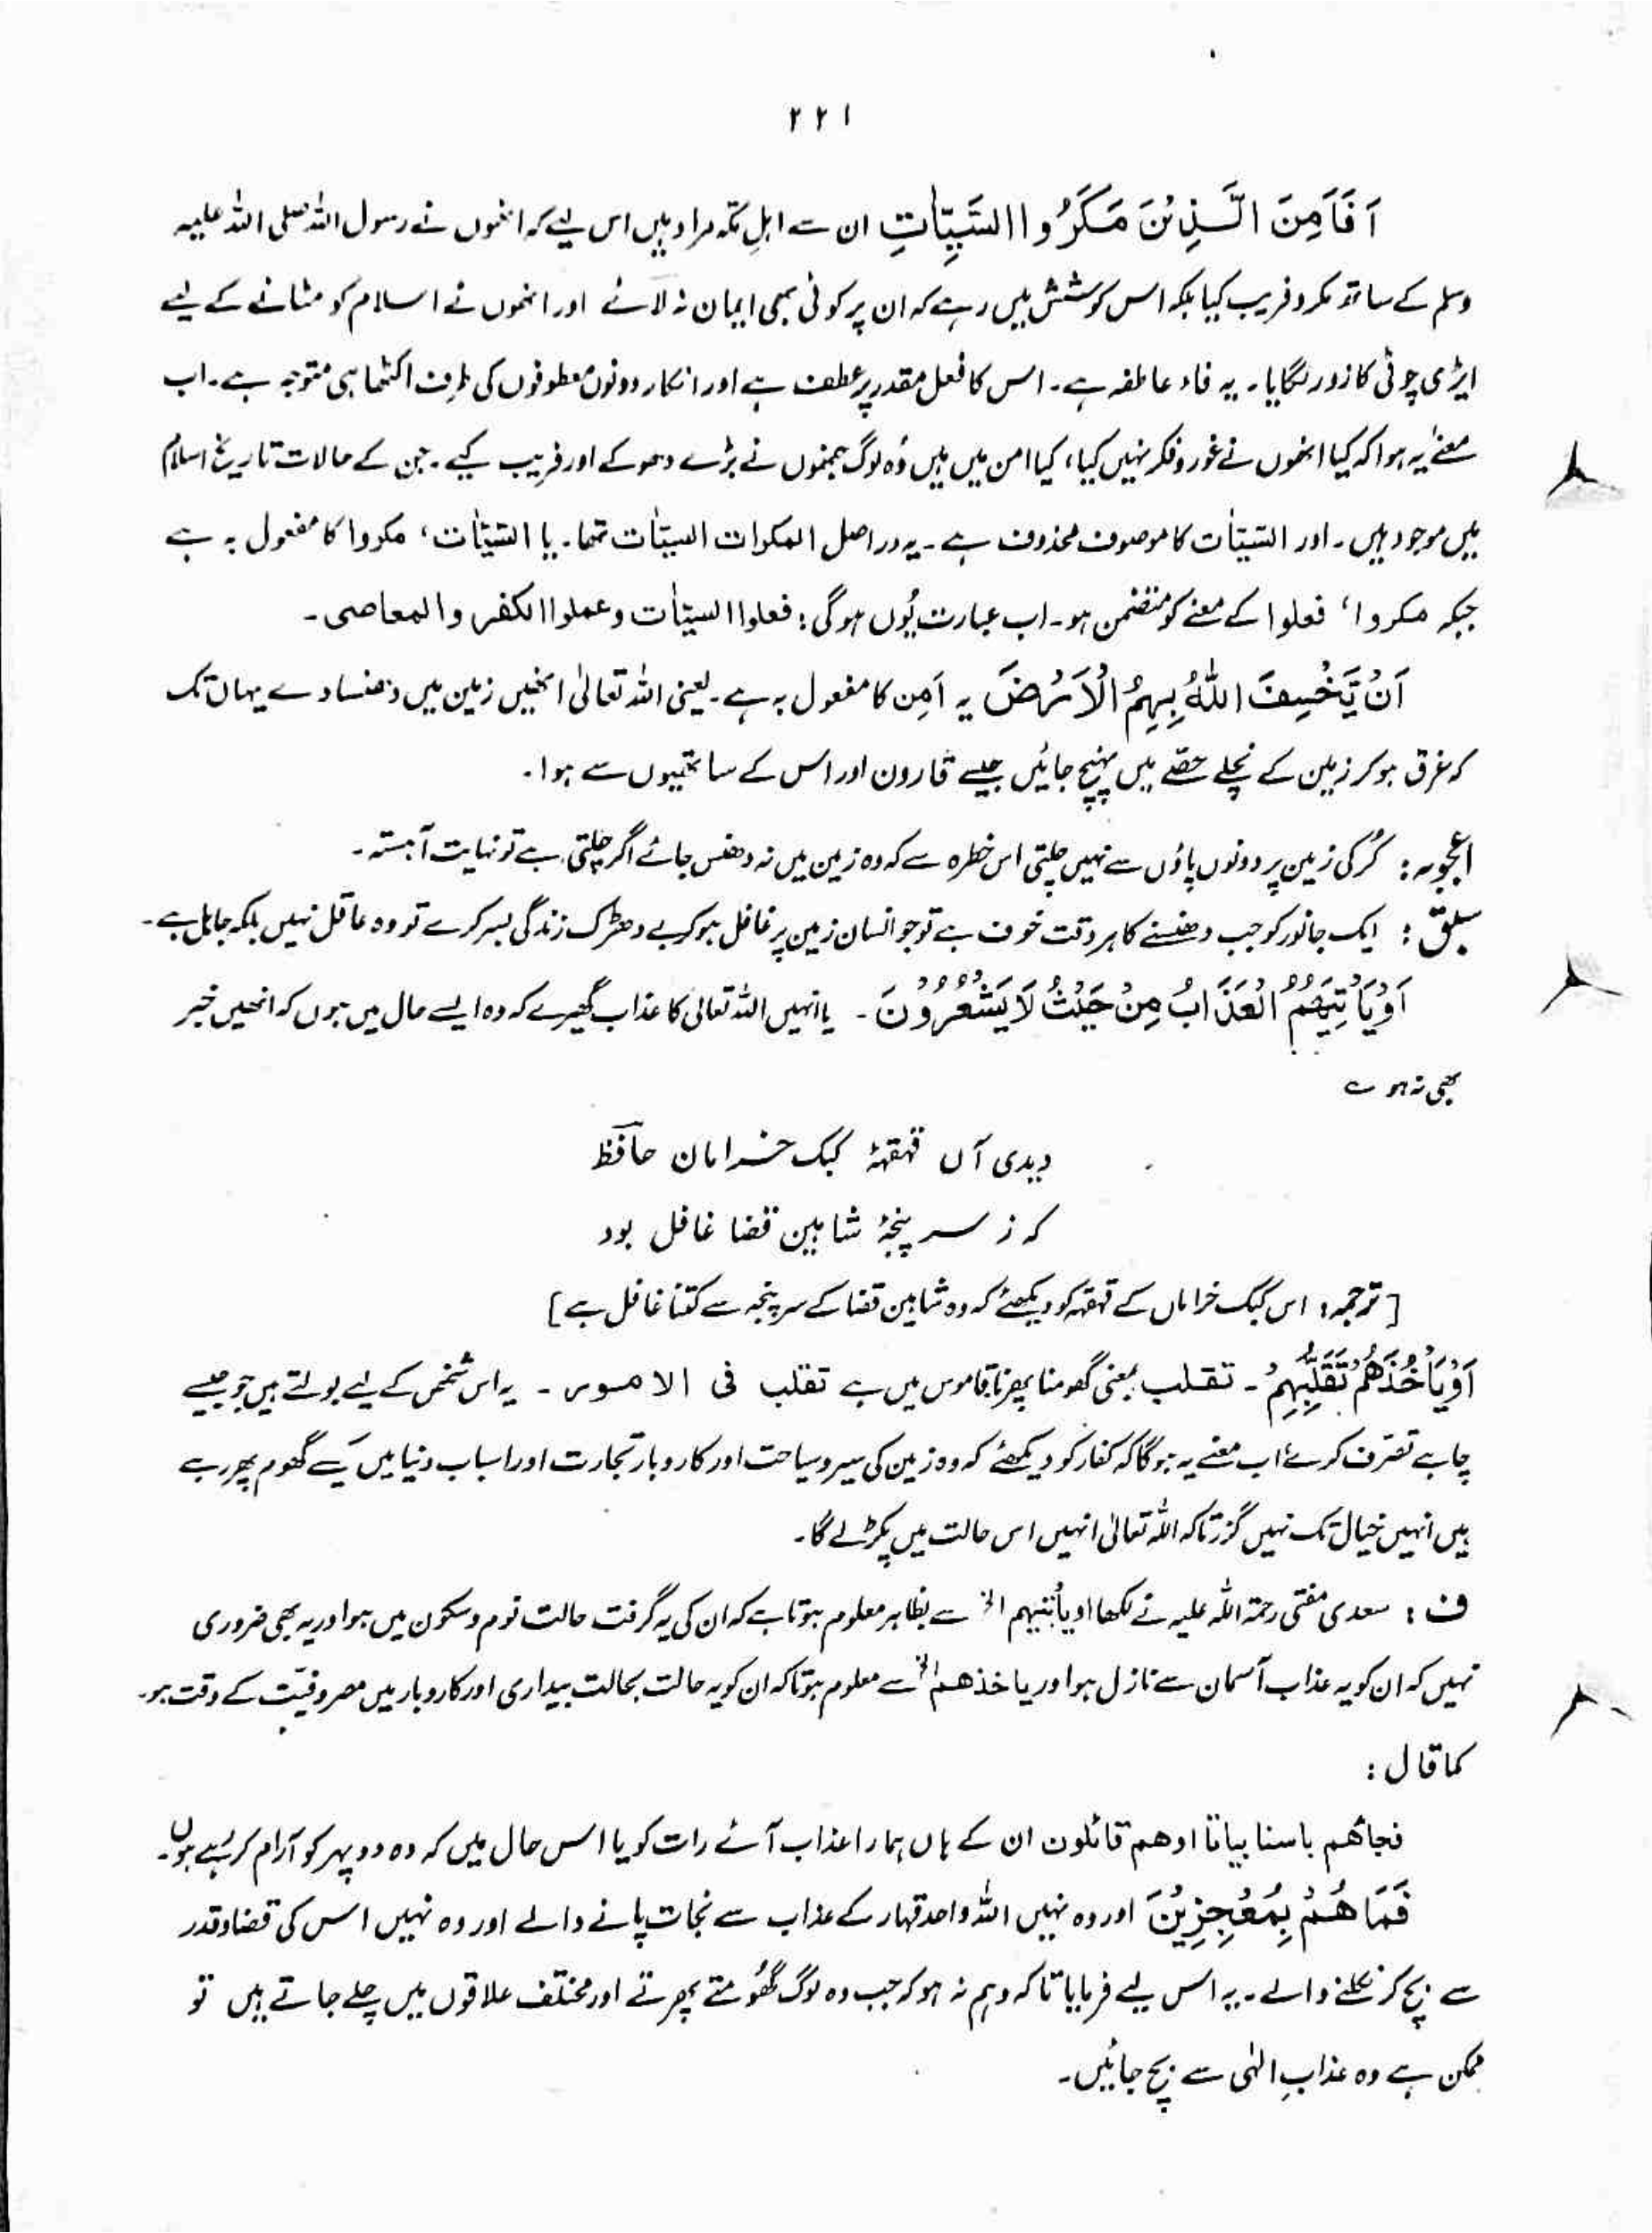 ۲۲۱
اَفَاَمِنَ الَّذِيْنَ مَكَرُوا السَّيِّاٰتِ ان سے اہلِ مکہ مراد ہیں اس لیے کہ انھوں نے رسول اللہ صلی اللہ علیہ
وسلم کے ساتھ مکر و فریب کیا بلکہ اس کوشش میں رہے کہ ان پر کوئی بھی ایمان نہ لائے اور انھوں نے اسلام کو مٹانے کے لیے
ایڑی چوٹی کا زور لگایا۔ یہ فاء عاطفہ ہے۔ اس کا فعل مقدر پر عطف ہے اور انکار دونوں معطوفوں کی طرف اکٹھا ہی متوجہ ہے۔ اب
معنےٰ یہ ہوا کہ کیا انھوں نے غور و فکر نہیں کیا، کیا امن میں ہیں وُہ لوگ جنھوں نے بڑے دھوکے اور فریب کیے۔ جن کے حالات تاریخِ اسلام
میں موجود ہیں۔ اور السّیّاٰت کا موصوف محذوف ہے۔ یہ دراصل المکرات السیّاٰت تھا۔ یا السّیّاٰت، مکروا کا مفعول بہ ہے
جبکہ مکروا، فعلوا کے معنے کو متضمن ہو۔ اب عبارت یُوں ہوگی: فعلوا السیّاٰت وعملوا الکفر والمعاصی۔
اَنْ يَّخْسِفَ اللّٰهُ بِهِمُ الْاَرْضَ یہ اَمِن کا مفعول بہ ہے۔ یعنی اللہ تعالیٰ انھیں زمین میں دھنسا دے یہاں تک
کہ غرق ہو کر زمین کے نچلے حصّے میں پہنچ جائیں جیسے قارون اور اس کے ساتھیوں سے ہوا۔
اعجوبہ : کُرکی زمین پر دونوں پاؤں سے نہیں چلتی اس خطرہ سے کہ وہ زمین میں نہ دھنس جائے اگر چلتی ہے تو نہایت آہستہ۔
سبق : ایک جانور کو جب دھنسنے کا ہر وقت خوف ہے تو جو انسان زمین پر غافل ہو کر بے دھڑک زندگی بسر کرے تو وہ عاقل نہیں بلکہ جاہل ہے۔
اَوْ يَاْتِيَهُمُ الْعَذَابُ مِنْ حَيْثُ لَا يَشْعُرُوْنَ ۔ یا انہیں اللہ تعالیٰ کا عذاب گھیرے کہ وہ ایسے حال میں ہوں کہ انھیں خبر
بھی نہ ہو ے
دیدی آں قہقہۂ کبک خراماں حافظؔ
کہ ز سر پنجۂ شاہین قضا غافل بود
[ترجمہ: اس کبک خراماں کے قہقہہ کو دیکھئے کہ وہ شاہین قضا کے سر پنجہ سے کتنا غافل ہے]
اَوْ يَاْخُذَهُمْ تَقَلُّبِهِمْ ۔ تقلب بمعنی گھومنا پھرنا قاموس میں ہے تقلب فی الامور ۔ یہ اس شخص کے لیے بولتے ہیں جو جیسے
چاہے تصرّف کرے اب معنے یہ ہوگا کہ کفار کو دیکھئے کہ وہ زمین کی سیر و سیاحت اور کاروبار تجارت اور اسباب دنیا میں کیسے گھوم پھر رہے
ہیں انہیں خیال تک نہیں گزرتا کہ اللہ تعالیٰ انہیں اس حالت میں پکڑ لے گا۔
ف : سعدی مفتی رحمۃ اللہ علیہ نے لکھا او یأتیہم الخ سے بظاہر معلوم ہوتا ہے کہ ان کی یہ گرفت حالت نوم و سکون میں ہو اور یہ بھی ضروری
نہیں کہ ان کو یہ عذاب آسمان سے نازل ہو اور یاخذھم الخ سے معلوم ہوتا کہ ان کو یہ حالت بحالت بیداری اور کاروبار میں مصروفیّت کے وقت ہو۔
کما قال :
فجائھم باسنا بیاتًا اوھم قائلون ان کے ہاں ہمارا عذاب آئے رات کو یا اس حال میں کہ وہ دوپہر کو آرام کر رہے ہوں۔
فَمَا هُمْ بِمُعْجِزِيْنَ اور وہ نہیں اللہ واحد قہار کے عذاب سے نجات پانے والے اور وہ نہیں اس کی قضا و قدر
سے بچ کر نکلنے والے۔ یہ اس لیے فرمایا تا کہ وہم نہ ہو کہ جب وہ لوگ گھُومتے پھرتے اور مختلف علاقوں میں چلے جاتے ہیں تو
ممکن ہے وہ عذابِ الٰہی سے بچ جائیں۔